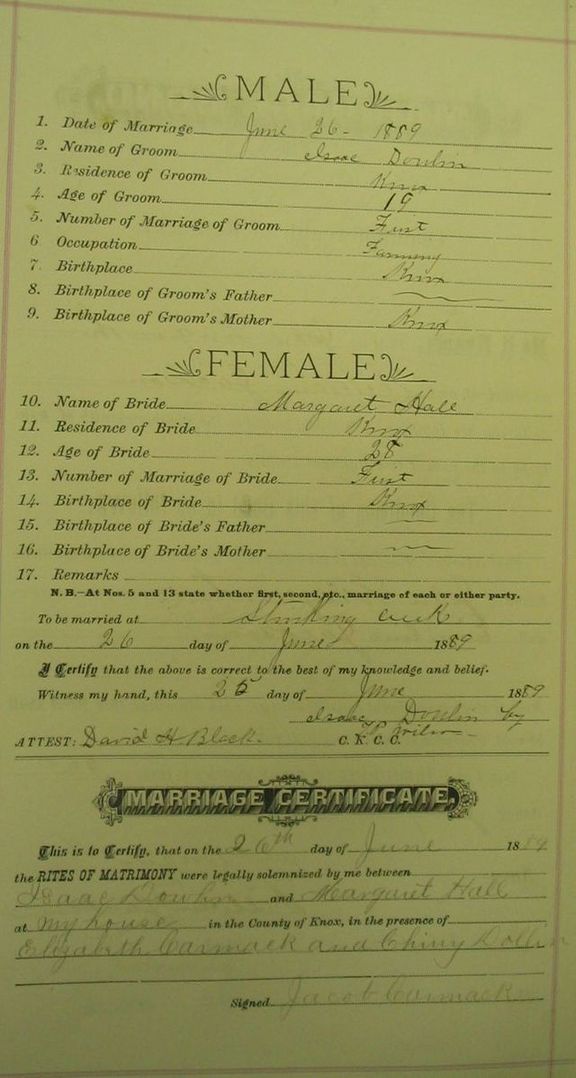 MALE
1. Date of Marriage June 26 - 1889
2. Name of Groom Isaac Doulin
3. Residence of Groom Knox
4. Age of Groom 19
5. Number of Marriage of Groom First
6 Occupation Farming
7. Birthplace Knox
8. Birthplace of Groom's Father
9. Birthplace of Groom's Mother Knox
FEMALE
10. Name of Bride Margaret Hall
11. Residence of Bride Knox
12. Age of Bride 28
13. Number of Marriage of Bride First
14. Birthplace of Bride Knox
15. Birthplace of Bride's Father
16. Birthplace of Bride's Mother
17. Remarks
N. B.—At Nos. 5 and 13 state whether first, second, etc., marriage of each or either party.
To be married at Stinking Creek
on the 26 day of June 1889
I Certify that the above is correct to the best of my knowledge and belief.
Witness my hand, this 25 day of June 1889
Isaac Doulin by
ATTEST: David H Black. C. K. C. C.
MARRIAGE CERTIFICATE.
This is to Certify, that on the 26th day of June 1889
the RITES OF MATRIMONY were legally solemnized by me between
Isaac Doulin and Margaret Hall
at my house in the County of Knox, in the presence of
Elizabeth Carmack and
Signed Jacob Carmack